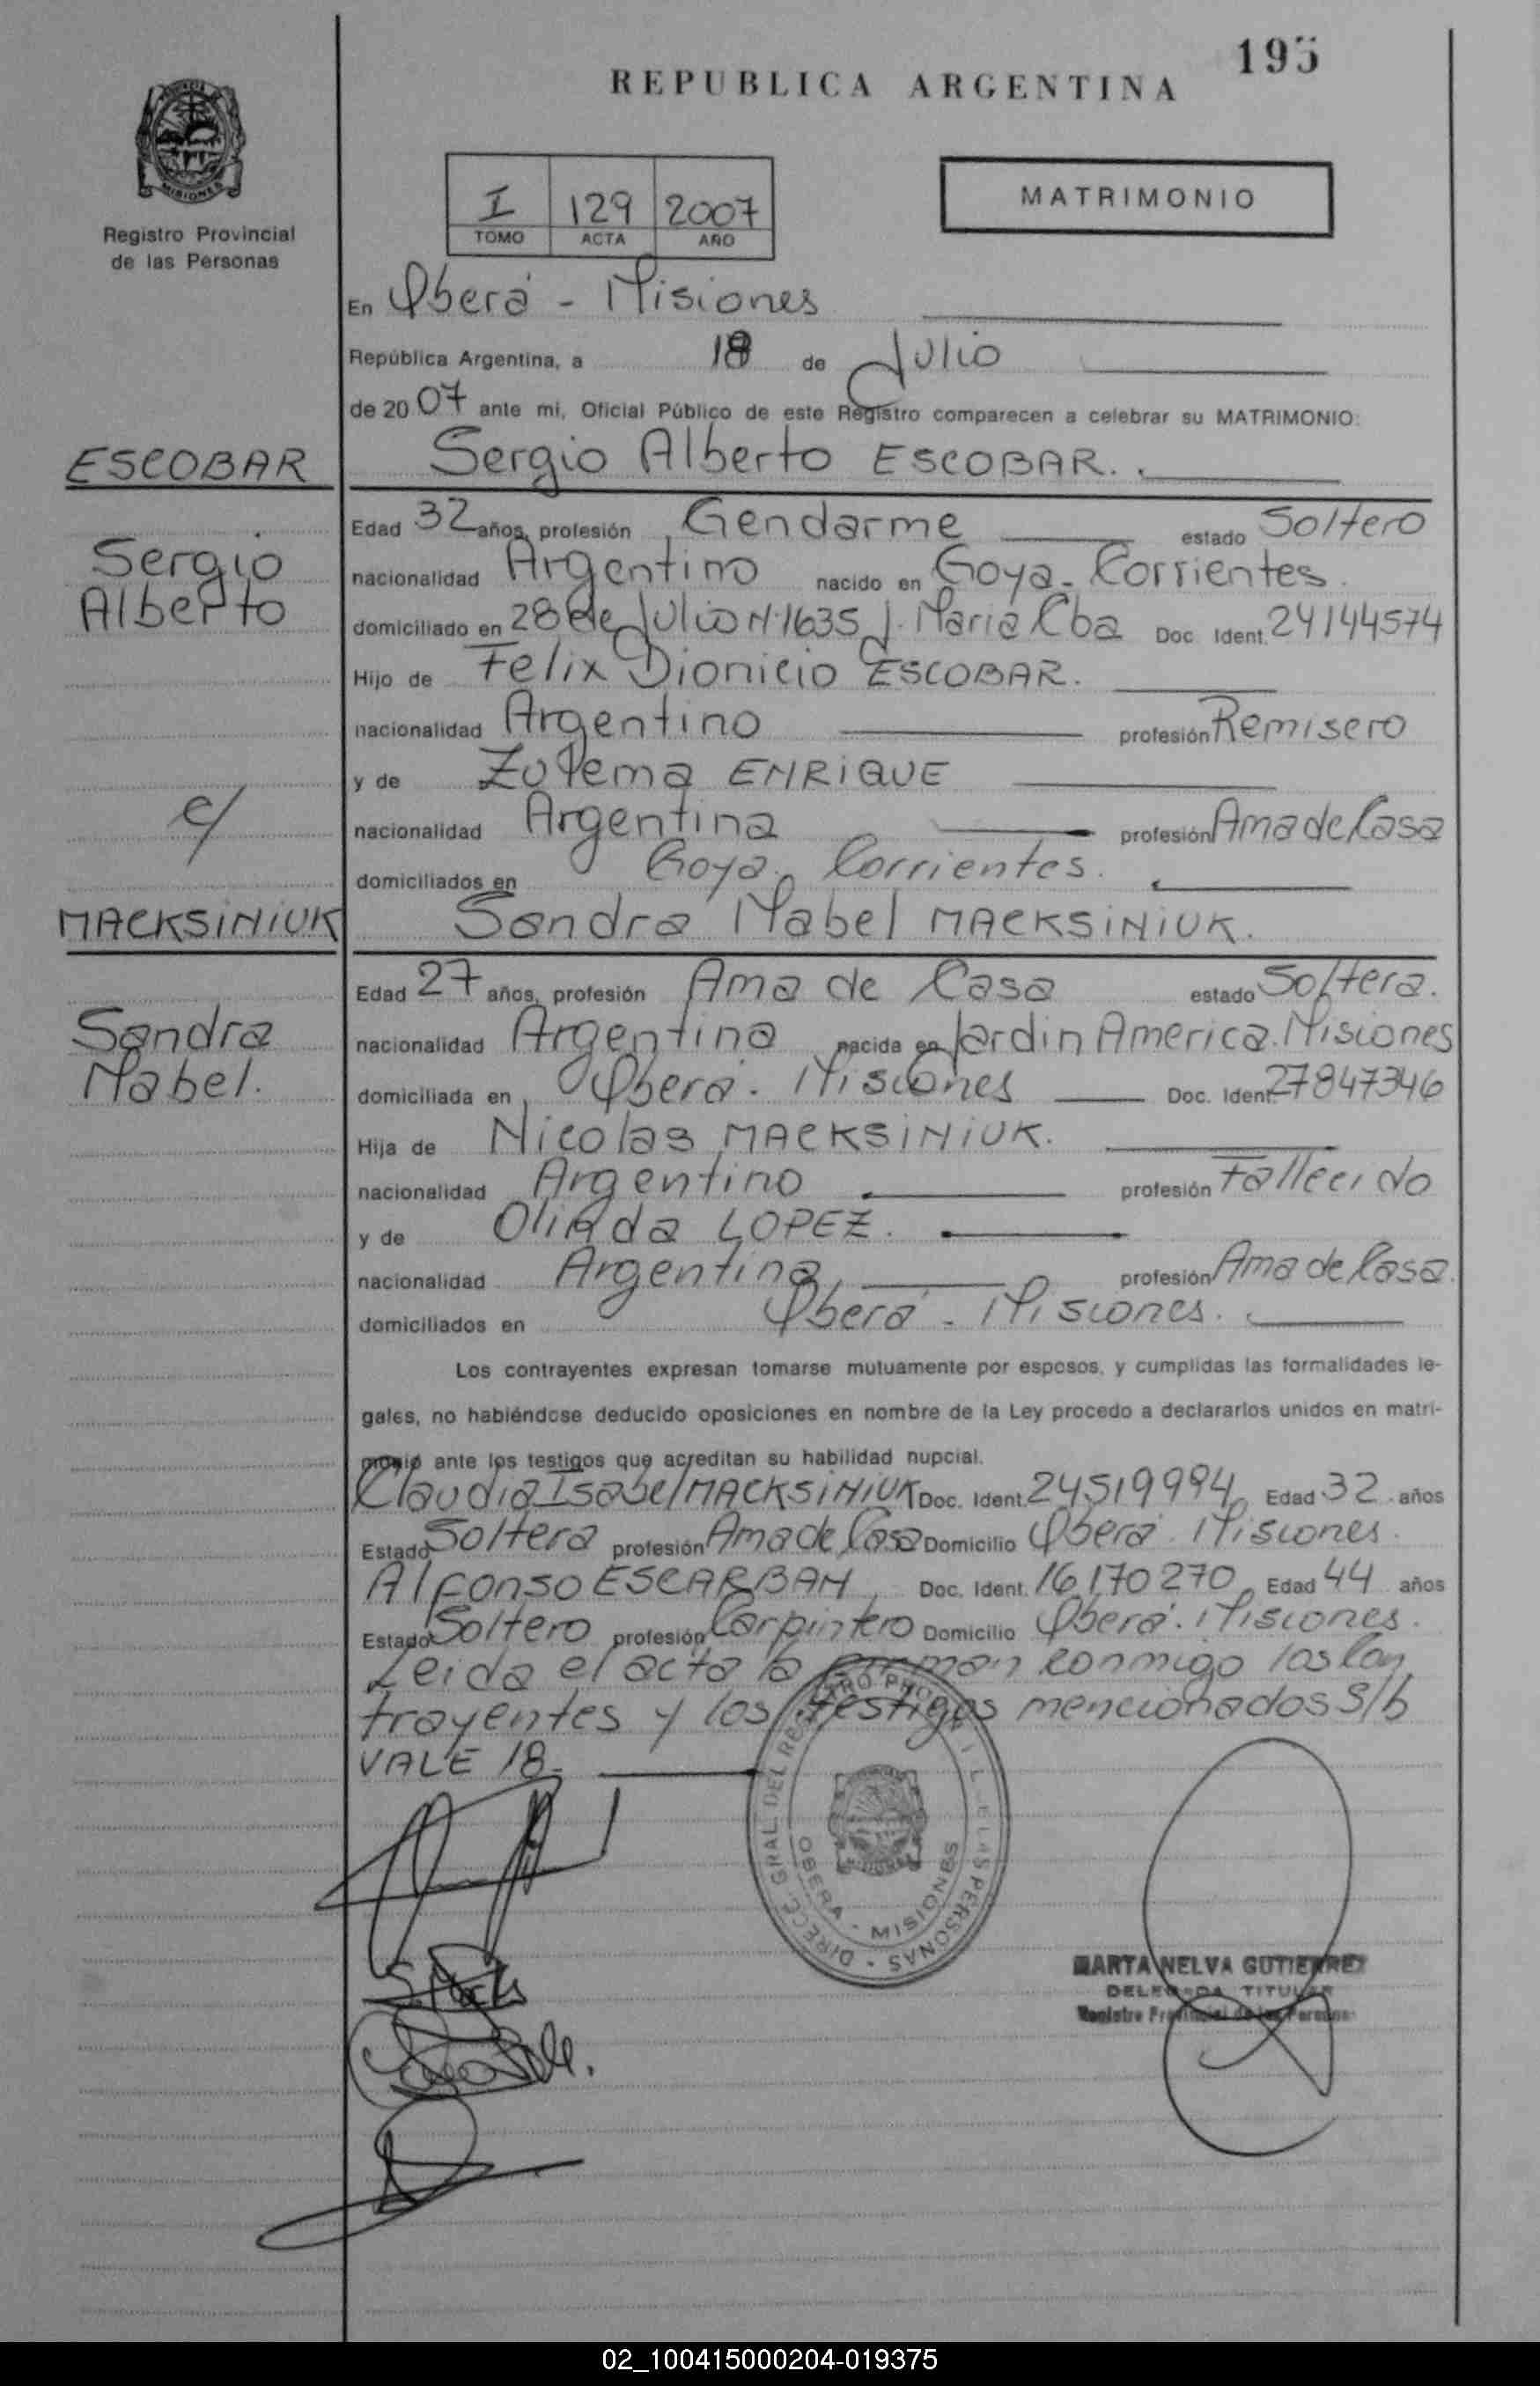 195
REPUBLICA ARGENTINA
MISIONES
Registro Provincial
de las Personas
I 129 2007
TOMO ACTA AÑO
MATRIMONIO
En Oberá - Misiones
República Argentina, a 18 de Julio
de 2007 ante mi, Oficial Público de este Registro comparecen a celebrar su MATRIMONIO:
ESCOBAR
Sergio Alberto ESCOBAR.
Sergio
Alberto
Edad 32 años, profesión Gendarme estado Soltero
nacionalidad Argentino nacido en Goya - Corrientes.
domiciliado en 28 de Julio N 1635 J. Maria Cba Doc. Ident. 24144574
Hijo de Felix Dionicio ESCOBAR.
nacionalidad Argentino profesión Remisero
y de Zulema ENRIQUE
c/
nacionalidad Argentina profesión Ama de Casa
domiciliados en Goya. Corrientes.
MACKSINIUK
Sandra Mabel MACKSINIUK.
Sandra
Mabel.
Edad 27 años, profesión Ama de Casa estado Soltera.
nacionalidad Argentina nacida en Jardin America. Misiones
domiciliada en Oberá - Misiones Doc. Ident. 27847346
Hija de Nicolas MACKSINIUK.
nacionalidad Argentino profesión Fallecido
y de LOPEZ.
nacionalidad Argentina, profesión Ama de Casa.
domiciliados en Oberá - Misiones.
Los contrayentes expresan tomarse mutuamente por esposos, y cumplidas las formalidades le-
gales, no habiéndose deducido oposiciones en nombre de la Ley procedo a declararlos unidos en matri-
monio ante los testigos que acreditan su habilidad nupcial.
Claudia Isabel MACKSINIUK Doc. Ident. 24519994 Edad 32 años
Estado Soltera profesión Ama de Casa Domicilio Oberá. Misiones.
Alfonso ESCARBAN Doc. Ident. 16170270 Edad 44 años
Estado Soltero profesión Carpintero Domicilio Oberá. Misiones.
Leida el acta la firman conmigo los con
trayentes y los testigos mencionados S/b
VALE 18.
DIRECC. GRAL. DEL REGISTRO PROVINCIAL DE LAS PERSONAS
OBERA - MISIONES
MARTA NELVA GUTIERREZ
DELEGADA TITULAR
Registro Provincial de las Personas
02_100415000204-019375